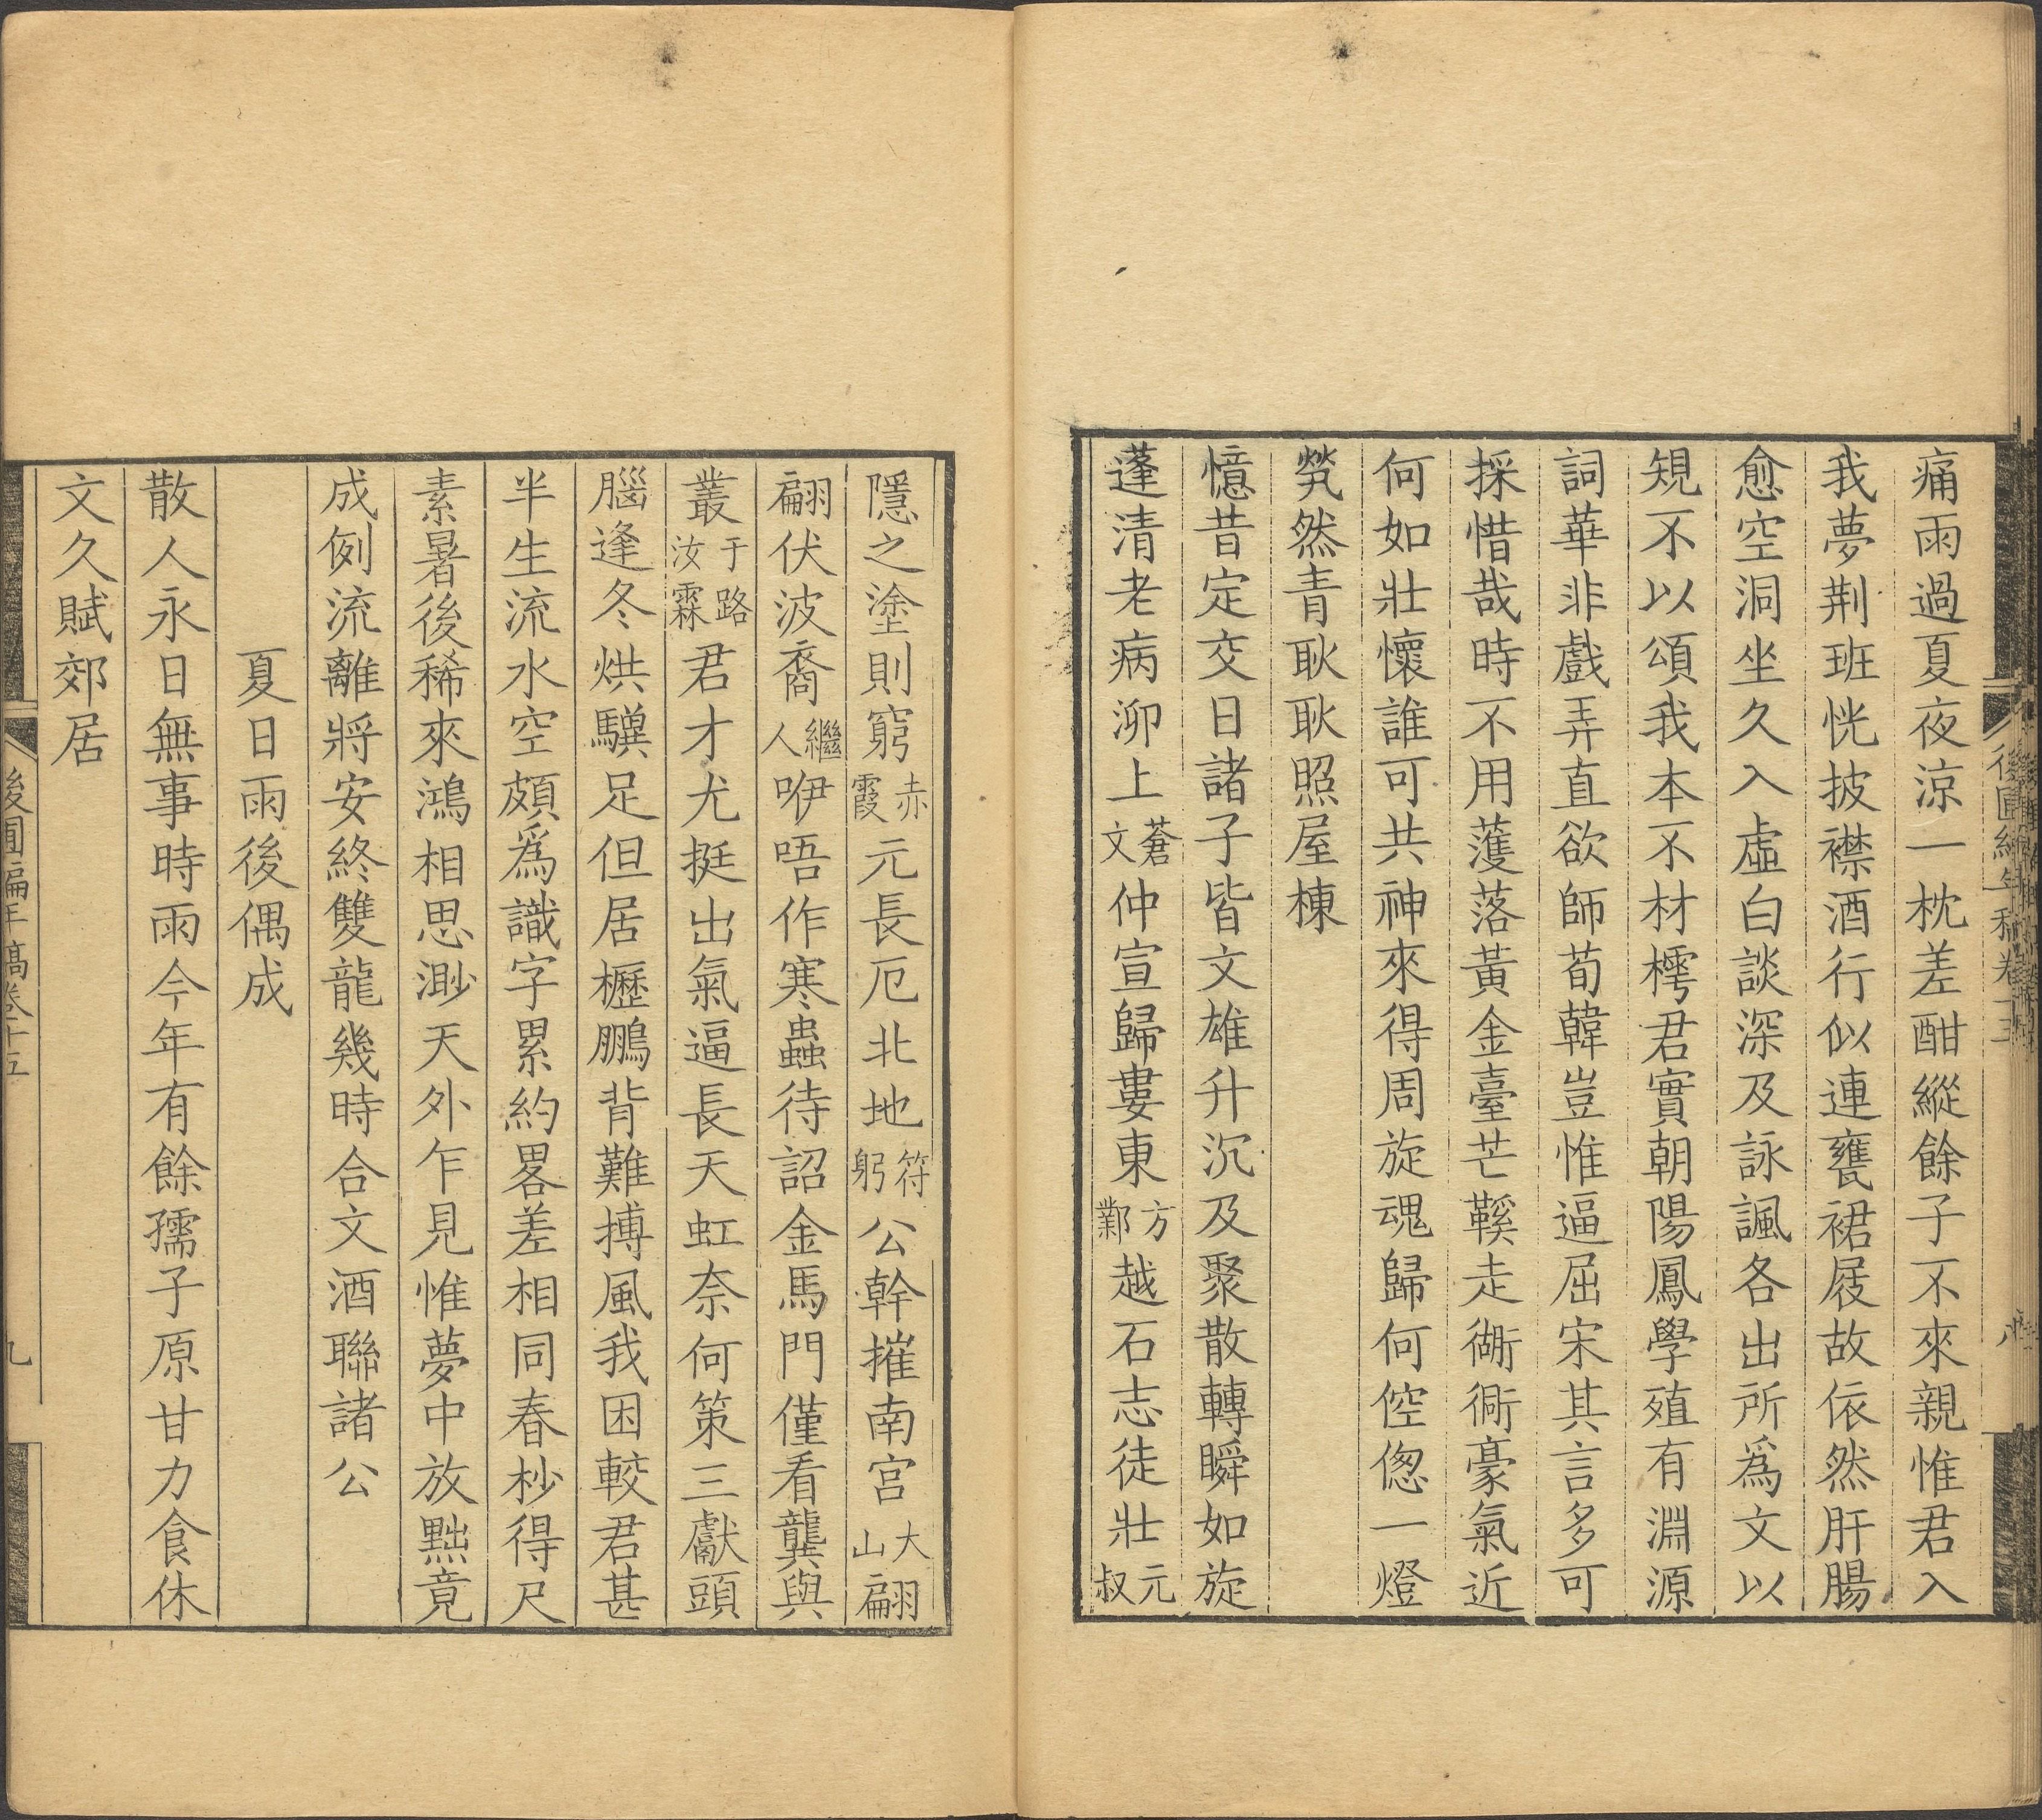 痛雨過夏夜涼一枕差酣縱餘子不來親惟君入
我夢荆班恍披襟酒行似連甕裙屐故依然肝腸
愈空洞坐久入虛白談深及詠諷各出所爲文以
規不以頌我本不材樗君實朝陽鳳學殖有淵源
詞華非戲弄直欲師荀韓豈惟逼屈宋其言多可
採惜哉時不用蒦落黃金臺芒鞵走衚衕豪氣近
何如壯懷誰可共神來得周旋魂歸何倥傯一燈
煢然青耿耿照屋棟
憶昔定交日諸子皆文雄升沉及聚散轉瞬如旋
蓬清老病泖上蒼文仲宣歸婁東方鄴越石志徒壯元叔
隱之塗則窮赤霞元長厄北地符躬公幹摧南宮大山翩
翩伏波裔繼人咿唔作寒蟲待詔金馬門僅看龔與
叢于路汝霖君才尤挺出氣逼長天虹奈何策三獻頭
腦逢冬烘驥足但居櫪鵬背難摶風我困較君甚
半生流水空頗爲識字累約畧差相同春杪得尺
素暑後稀來鴻相思渺天外乍見惟夢中放黜竟
成例流離將安終雙龍幾時合文酒聯諸公
夏日雨後偶成
散人永日無事時雨今年有餘孺子原甘力食休
文久賦郊居
後圃編年稿卷十五
九